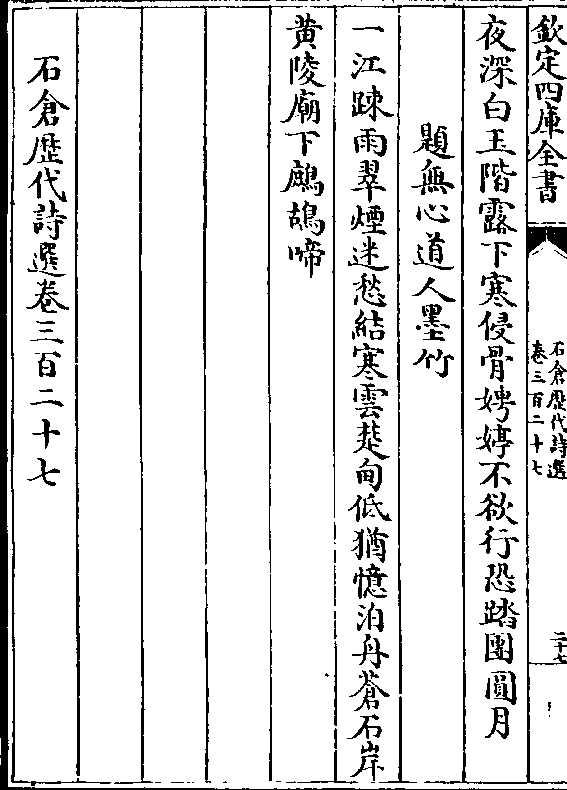 欽定四庫全書
石倉歴代詩選
卷三百二十七
二十七
夜深白玉階露下寒侵骨娉婷不欲行恐踏團圓月
題無心道人墨竹
一江踈雨翠煙迷愁結寒雲楚甸低猶憶泊舟蒼石岸
黄陵廟下鷓鴣啼
石倉歴代詩選卷三百二十七